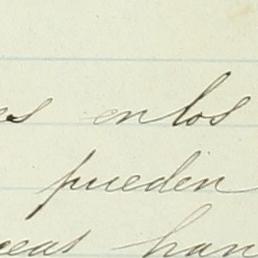 es en los
pueden
eas han